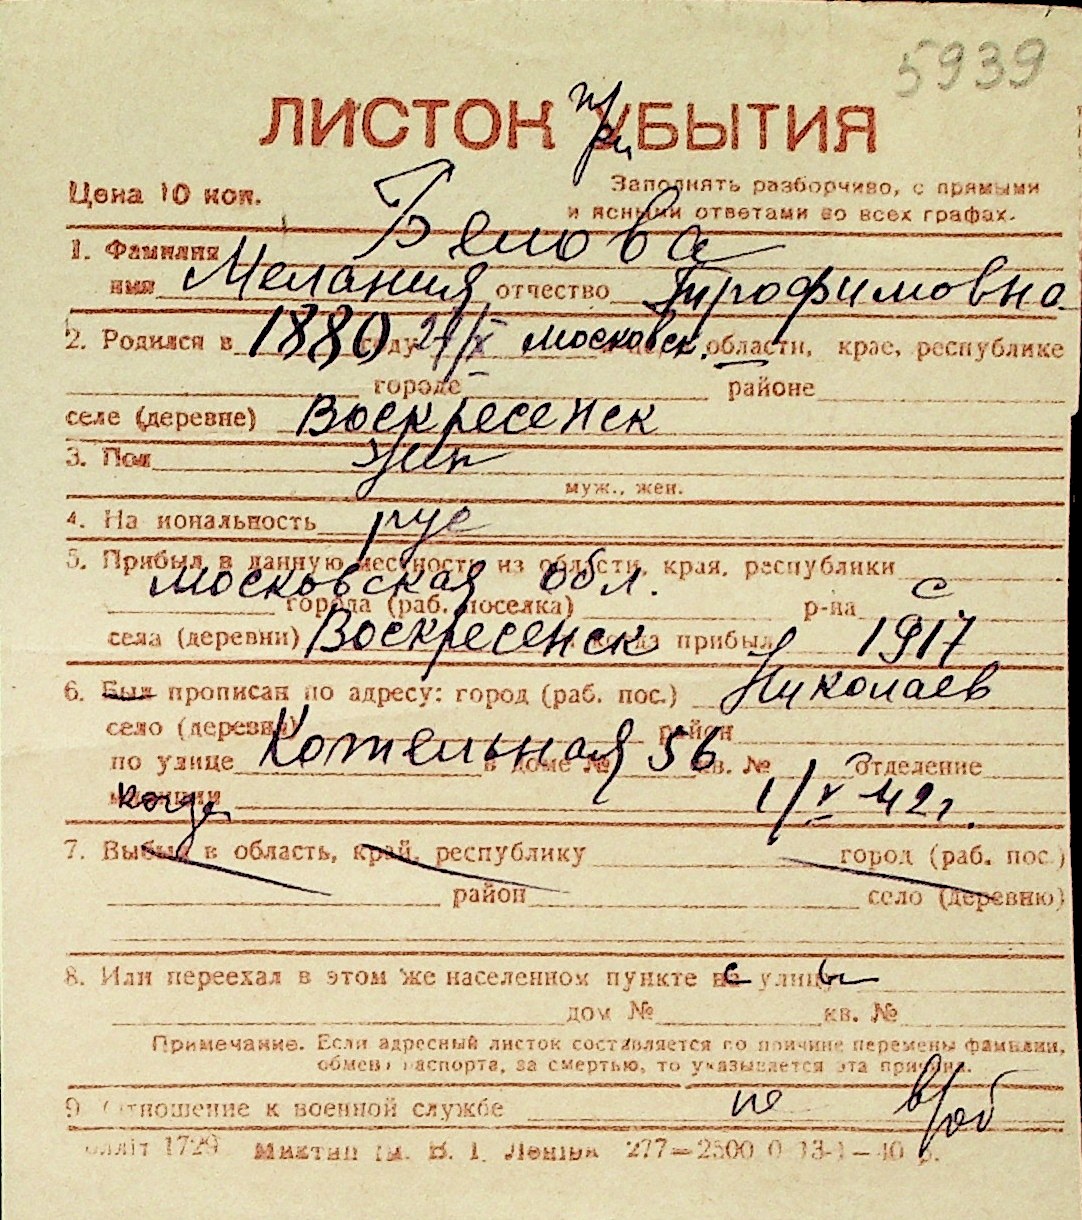 5939
ЛИСТОК УБЫТИЯ
Цена 10 коп.
Заполнять разборчиво, с прямыми
и ясными ответами во всех графах.
1. Фамилия Белова
имя Мелания отчество Трофимовна
2. Родился в 1880 году 21/X московск. области, крае, республике
городе районе
селе (деревне) Воскресенск
3. Пол жен
муж., жен.
4. На иональность рус
5. Прибыл в данную местность из области, края, республики
московская обл.
города (раб. поселка) р-на с
села (деревни) Воскресенск прибыл 1917
6. Был прописан по адресу: город (раб. пос.) Николаев
село (деревня) район
по улице Котельная в доме № 56 кв. № отделение
милиции когда 1/V 42 г.
7. Выбыл в область, край, республику город (раб. пос.)
район село (деревню)
8. Или переехал в этом же населенном пункте с улицы
дом № кв. №
Примечание. Если адресный листок составляется по причине перемены фамилии,
обмена паспорта, за смертью, то указывается эта причина.
9. Отношение к военной службе не в/об
1729 Миктип ім. В. І. Леніна 277—2500 0 13-1—40 р.